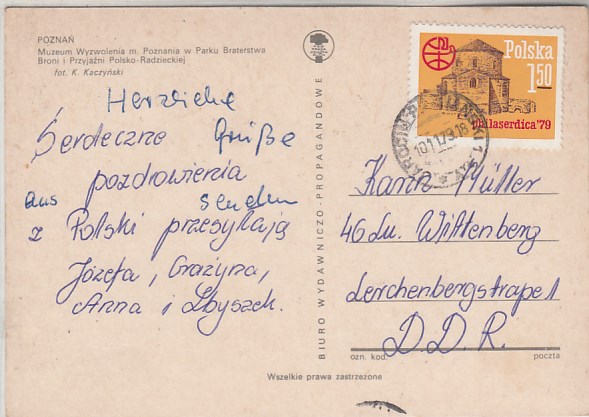 POZNAŃ
Muzeum Wyzwolenia m. Poznania w Parku Braterstwa
Broni i Przyjaźni Polsko-Radzieckiej
fot. K. Kaczyński
Herzliche
Serdeczne Grüße
pozdrowienia
aus senden
z Polski przesyłają
Józefa, Grażyna,
Anna i Zbyszek.
BIURO WYDAWNICZO-PROPAGANDOWE
Polska
1,50
philaserdica'79
Müller
46 Lu. Wittenberg
Lerchenbergstraße 1
D.D.R.
ozn. kod. poczta
Wszelkie prawa zastrzeżone